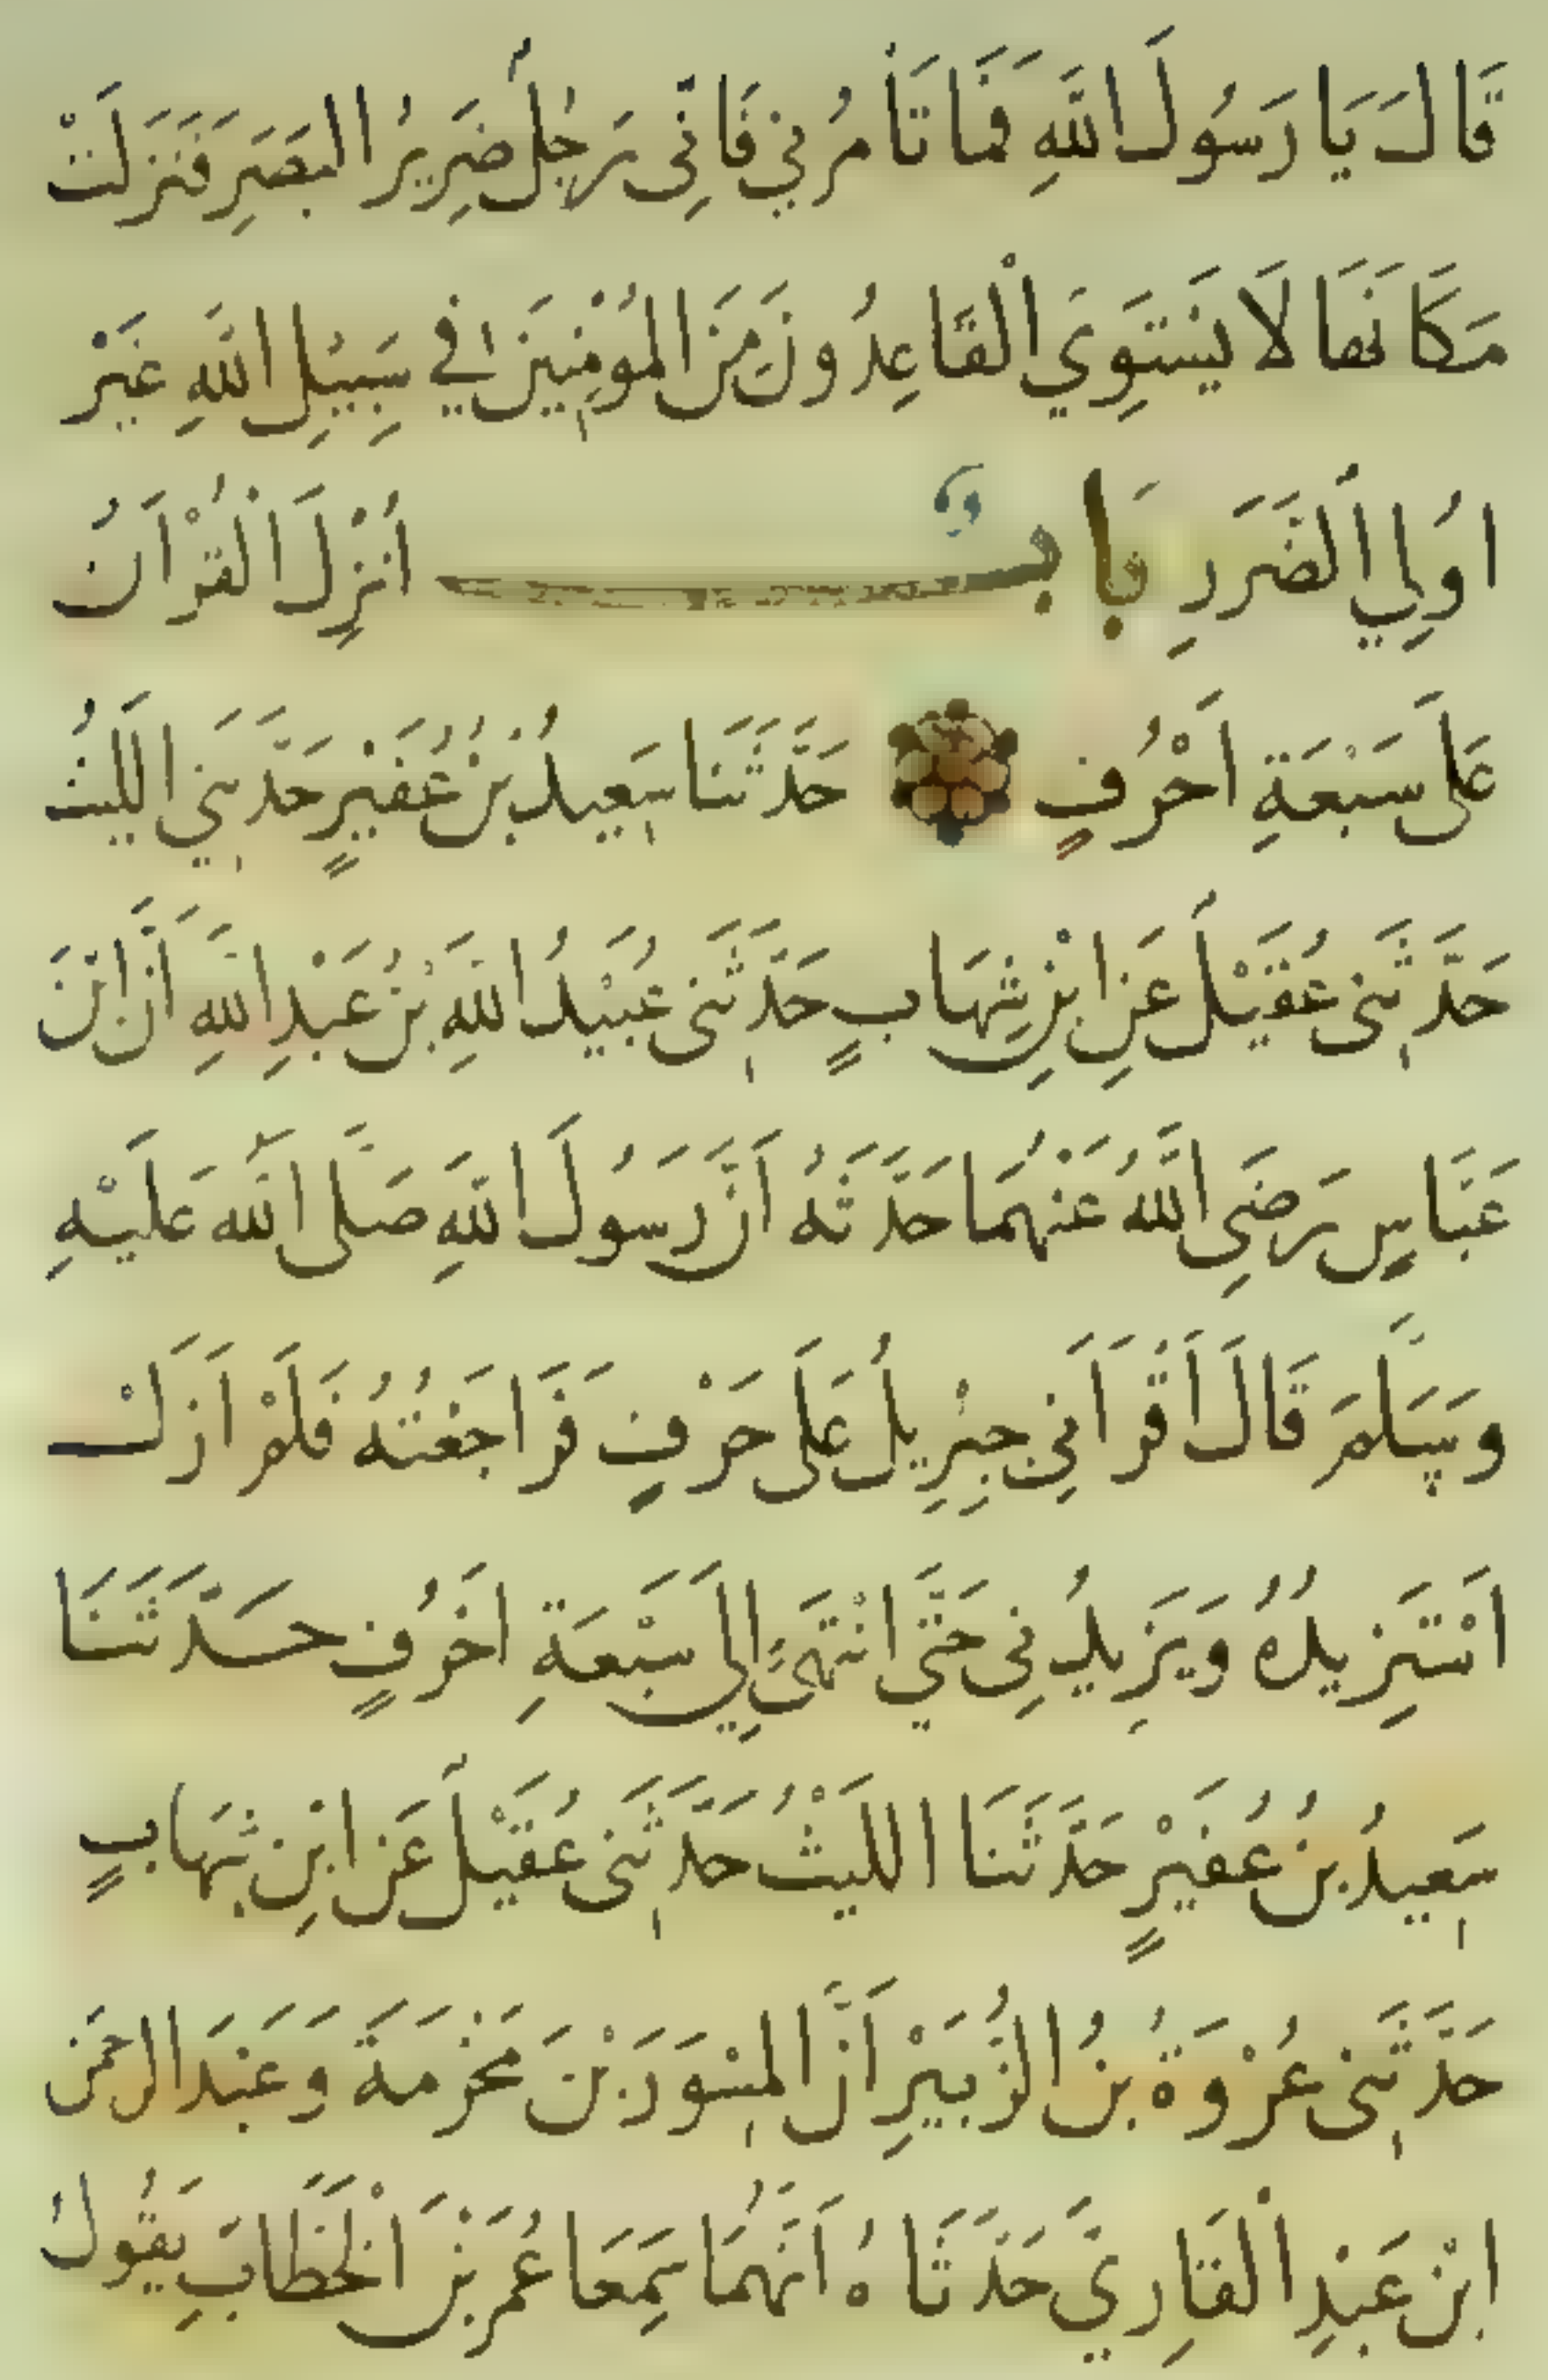 قَالَ يَا رَسُولَ اللَّهِ فَمَا تَأْمُرُنِي فَإِنِّي رَجُلٌ ضَرِيرُ الْبَصَرِ فَنَزَلَتْ
مَكَانَهَا لَا يَسْتَوِي الْقَاعِدُونَ مِنَ الْمُؤْمِنِينَ فِي سَبِيلِ اللَّهِ غَيْرَ
اُولِي الضَّرَرِ بَابٌ أُنْزِلَ الْقُرْآنُ
عَلَى سَبْعَةِ اَحْرُفٍ حَدَّثَنَا سَعِيدُ بْنُ عُفَيْرٍ حَدَّثَنِي اللَّيْثُ
حَدَّثَنِي عُقَيْلٌ عَنِ ابْنِ شِهَابٍ حَدَّثَنِي عُبَيْدُ اللَّهِ بْنُ عَبْدِ اللَّهِ اَنَّ ابْنَ
عَبَّاسٍ رَضِيَ اللَّهُ عَنْهُمَا حَدَّثَهُ اَنَّ رَسُولَ اللَّهِ صَلَّى اللَّه عَلَيْهِ
وَسَلَّمَ قَالَ اَقْرَاَنِي جِبْرِيلُ عَلَى حَرْفٍ فَرَاجَعْتُهُ فَلَمْ اَزَلْ
اَسْتَزِيدُهُ وَيَزِيدُنِي حَتَّى انْتَهَى اِلَى سَبْعَةِ اَحْرُفٍ حَدَّثَنَا
سَعِيدُ بْنُ عُفَيْرٍ حَدَّثَنَا اللَّيْثُ حَدَّثَنِي عُقَيْلٌ عَنِ ابْنِ شِهَابٍ
حَدَّثَنِي عُرْوَةُ بْنُ الزُّبَيْرِ اَنَّ الْمِسْوَرَ بْنَ مَخْرَمَةَ وَعَبْدَ الرَّحْمَنِ
ابْنَ عَبْدٍ الْقَارِيَّ حَدَّثَاهُ اَنَّهُمَا سَمِعَا عُمَرَ بْنَ الْخَطَّابِ يَقُولُ